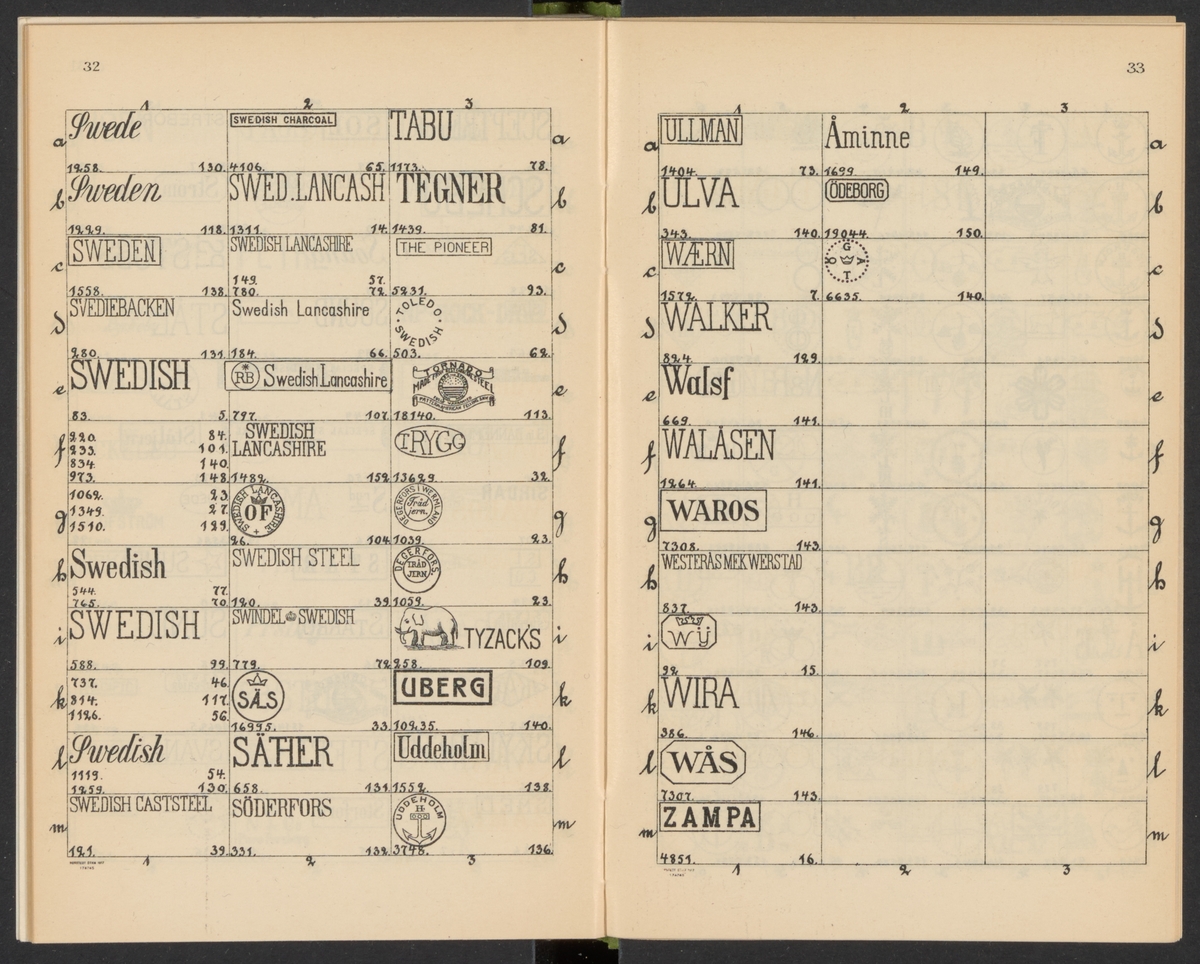 32
1 2 3
a
Swede
1258. 130.
SWEDISH CHARCOAL
4106. 65.
TABU
1173. 78.
a
b
Sweden
1229. 118.
SWED.LANCASH
1311. 14.
TEGNER
1439. 81.
b
c
SWEDEN
1558. 138.
SWEDISH LANCASHIRE
149. 57.
780. 72.
THE PIONEER
5231. 93.
c
d
SVEDIEBACKEN
280. 131.
Swedish Lancashire
184. 66.
TOLEDO
SWEDISH
503. 62.
d
e
SWEDISH
83. 5.
RB Swedish Lancashire
797. 107.
TORNADO
18140. 113.
e
f
220. 84.
233. 101.
834. 140.
973. 148.
SWEDISH
LANCASHIRE
1482. 152.
TRYGG
13629. 32.
f
g
1062. 23.
1349. 27.
1510. 129.
SWEDISH LANCASHIRE
OF
26. 104.
DEGERFORS I WERMLAND
Tråd
jern.
1039. 23.
g
h
Swedish
544. 77.
765. 70.
SWEDISH STEEL
120. 39.
DEGERFORS.
TRÅD
JERN
1059. 23.
h
i
SWEDISH
588. 99.
SWINDEL SWEDISH
779. 72.
TYZACK'S
258. 109.
i
k
737. 46.
814. 117.
1126. 56.
SÄLS
16995. 33.
UBERG
10235. 140.
k
l
Swedish
1119. 54.
1259. 130.
SÄTHER
658. 131.
Uddeholm
1552. 138.
l
m
SWEDISH CASTSTEEL
121. 39.
SÖDERFORS
331. 132.
UDDEHOLM
3748. 136.
m
1 2 3
33
1 2 3
a
ULLMAN
1404. 73.
Åminne
1699. 149.
a
b
ULVA
343. 140.
ÖDEBORG
19044. 150.
b
c
WÆRN
1572. 7.
6635. 140.
c
d
WALKER
824. 129.
d
e
Walsf
669. 141.
e
f
WALÅSEN
1264. 141.
f
g
WAROS
7308. 143.
g
h
WESTERÅS MEK WERSTAD
837. 143.
h
i
WÜ
92. 15.
i
k
WIRA
386. 146.
k
l
WÅS
7307. 143.
l
m
ZAMPA
4851. 16.
m
1 2 3